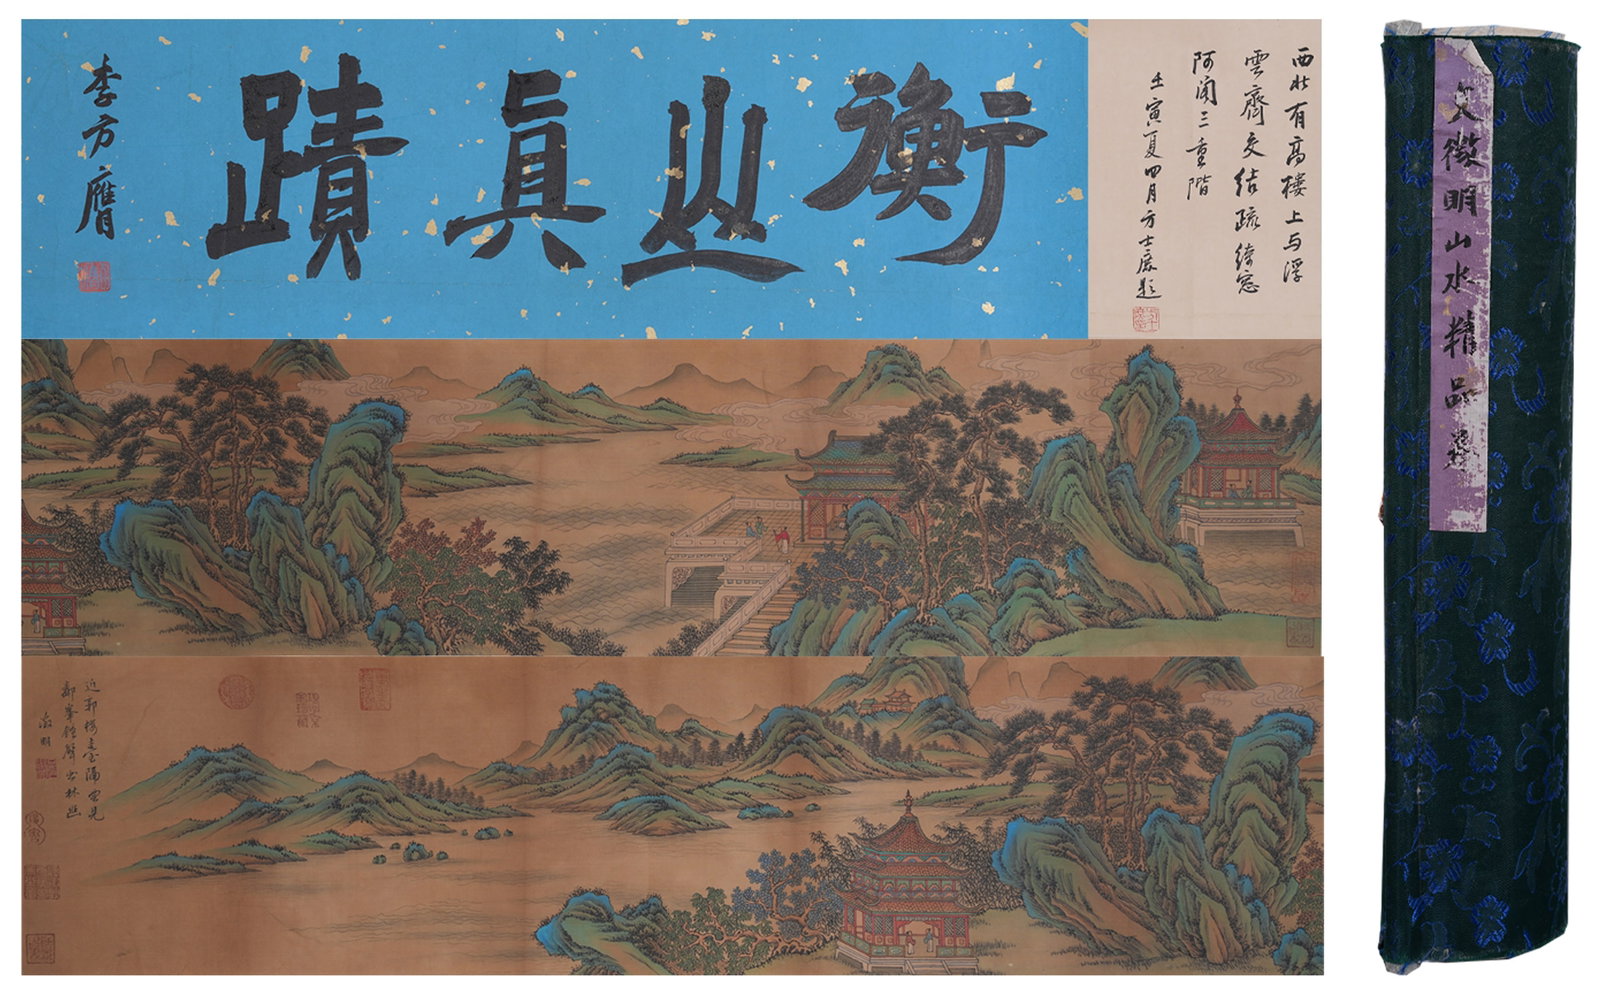 西北有高樓上与浮
雲齊交結疏綺窓
阿阁三重階
壬寅夏四月方士庶题
衡山眞蹟
李方膺
近郭樓臺隔雲見
鄰峯鐘聲出林
徵明
文徵明山水精品